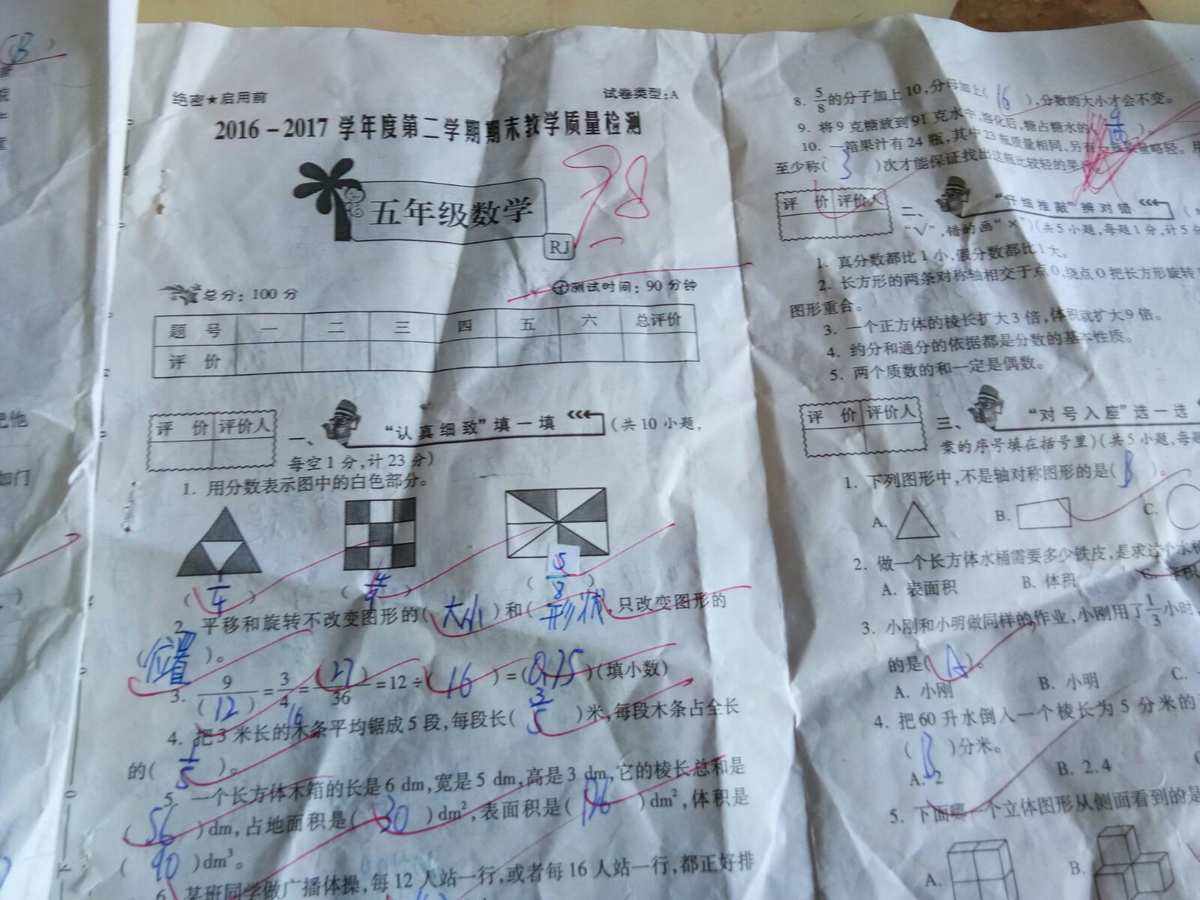 绝密★启用前
试卷类型:A
2016-2017 学年度第二学期期末教学质量检测
五年级数学
RJ
98
总分:100 分
测试时间:90 分钟
题 号 一 二 三 四 五 六 总评价
评 价
评 价 评价人
一、“认真细致”填一填 (共 10 小题,
每空 1 分,计 23 分)
1. 用分数表示图中的白色部分。
( 1/4 ) ( 4/9 ) ( 5/8 )
2. 平移和旋转不改变图形的( 大小 )和( 形状 ,只改变图形的
( 位置 )。
3. 9/(12) = 3/4 = (27)/36 =12÷( 16 )=( 0.75 )(填小数)
4. 把 3 米长的木条平均锯成 5 段,每段长( 3/5 )米,每段木条占全长
的( 1/5 )。
5. 一个长方体木箱的长是 6 dm,宽是 5 dm,高是 3 dm,它的棱长总和是
( 56 )dm,占地面积是( 30 )dm²,表面积是( 126 )dm²,体积是
( 90 )dm³。
6. 某班同学做广播体操,每 12 人站一行,或者每 16 人站一行,都正好排
8. 5/8 的分子加上 10,分母加上( 16 ),分数的大小才会不变。
9. 将 9 克糖放到 91 克水中,溶化后,糖占糖水的
10. 一箱果汁有 24 瓶,其中 23 瓶质量相同,另有 略轻。用
至少称( 3 )次才能保证找出这瓶比较轻的果
评 价 评价人
二、“仔细推敲”辨对错
“√”,错的画“×”)(共 5 小题,每题 1 分,计 5 分
1. 真分数都比 1 小,假分数都比 1 大。
2. 长方形的两条对称轴相交于点 O,绕点 O 把长方形旋转
图形重合。
3. 一个正方体的棱长扩大 3 倍,体积就扩大 9 倍。
4. 约分和通分的依据都是分数的基本性质。
5. 两个质数的和一定是偶数。
评 价 评价人
三、“对号入座”选一选
案的序号填在括号里)(共 5 小题,每
1. 下列图形中,不是轴对称图形的是( B )。
A. B. C.
2. 做一个长方体水桶需要多少铁皮,是求这个水桶
A. 表面积 B. 体积
3. 小刚和小明做同样的作业,小刚用了 1/3 小时
的是( A )。
A. 小刚 B. 小明 C.
4. 把 60 升水倒入一个棱长为 5 分米的
( B )分米。
A. 2 B. 2.4
5. 下面哪一个立体图形从侧面看到的是
A. B.